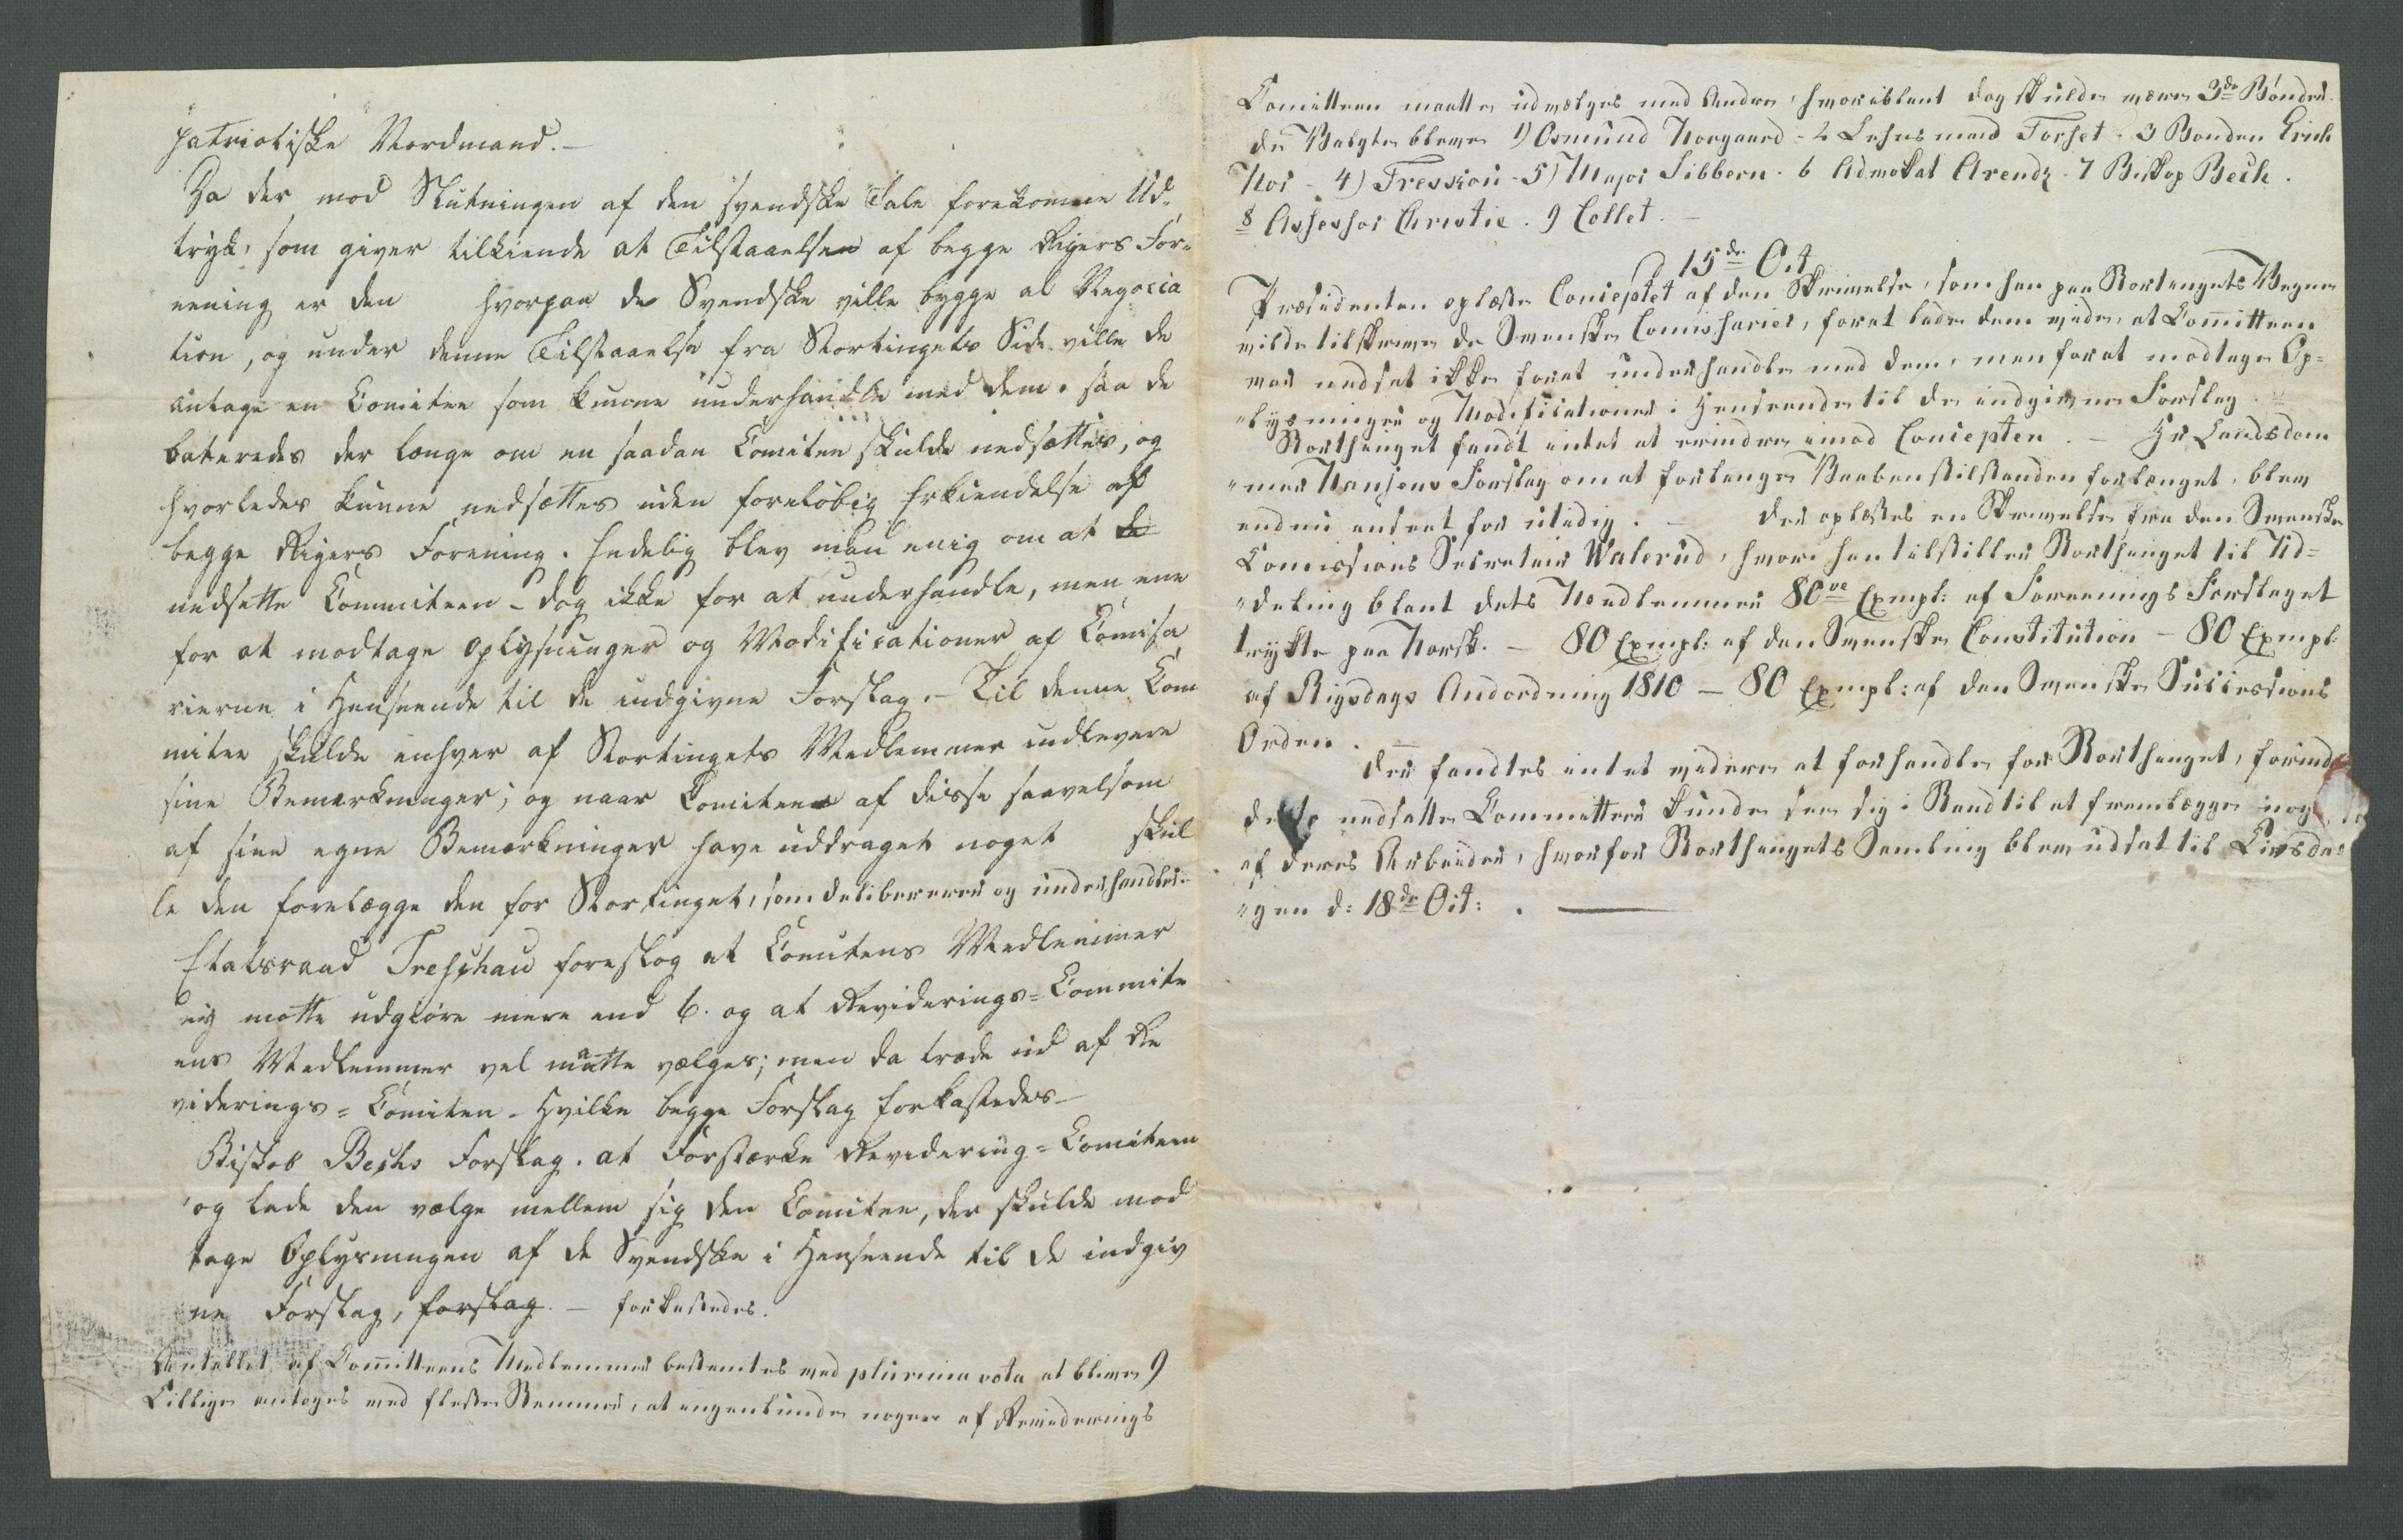 patriotiske Nordmænd.-
Da der mod Slutningen af den svendske Tale forekomme Ud-
tryk, som giver tilkiende at Tilstaaelsen af begge Rigers For-
eening er den hvorpaa de Svendske ville bygge al Negocia
tion, og under denne Tilstaaelse fra Stortingets Side ville de
antage en Comitee som kunne underhandle med dem. saa de
bateredes der længe om en saadan Comitee skulde nedsættes, og
hvorledes kunne nedsættes uden foreløbig Erkiendelse af
begge Rigers Forening. Endelig blev man enig om at de
nedsette Commiteen - dog ikke for at underhandle, men ene
for at modtage Oplysninger og Modificationer af Comissa
rierne i Henseende til de indgivne Forslag. - Til denne Com
mitee skulde enhver af Stortingets Medlemmer indlevere
sine Bemærkninger; og naar Comiteen af disse saavelsom
af sine egne Bemærkninger have uddraget noget skul
le den forelægge den for Stortinget, som delibererer og underhandler.
Etatsraad Treschau foreslog at Comitens Medlemmer
eij motte udgiøre mere end 6. og at Reviderings=Commite
ens Medlemmer vel maatte vælges; men da træde ud af Re
viderings=Comiteen - Hvilke begge Forslag forkastedes -
Biskob Bechs Forslag. at Forstærke Revidering=Comiteen
og lade den vælge mellem sig den Comitee, der skulde mod
tage Oplysningen af de Svendske i Henseende til de indgiv
ne Forslag, forslag. - forkastedes.
Antallet af Committeens Medlemmer bestemtes med plurima vota at blive 9
Tillige antoges med fleste Stemmer, at ingenlunde nogen af Reviderings
Comitteen maatte udvælges med Andre, hvoriblant dog skulde være 3de Bønder.
de Valgte bleve 1) Osmund Norgaard - 2 Lehnsmand Forset - 3 Bonden Erich
Mos - 4) Treschou - 5) Major Sibbern. 6 Advokat Arendz. 7 Biskop Bech.
8 Assessor Christie. 9 Collet. -
d 15de Oct
Præsidenten oplæste Conceptet af den Skrivelse, som han paa Stortingets Vegne
vilde tilskrive de Svenske Commissarier, forat lade dem vide, at Committeen
var nedsat ikke forat underhandle med dem, men forat modtage Op=
"lysninger og Modificationer i Henseende til de indgivne Forslag.
Storthinget fandt intet at erindre imod Concepten. - Hr Landsdom
"mer Hansens Forslag om at forlange Vaabenstilstanden forlænget, blev
endnu anseet for utidig. - Der oplæstes en Skrivelse fra den Svenske
Comissions Secretair Walerud, hvori han tilstiller Storthinget til Ud=
"deling blant dets Medlemmer 80ve Exmpl: af Foreenings Forslaget
trykte paa Norsk. - 80 Exmpl: af den Svenske Constitution - 80 Exmpl:
af Rigsdags Andordning 1810 - 80 Exmpl: af den Svenske Successions
Orden.
Der fandtes intet videre at forhandle for Storthinget, forind
nedsatte Committeer kunde see sig i Stand til at fremlægge nog
af deres Arbeider, hvorfor Storthingets Samling blev udsat til Tirsda
"gen d: 18de Oct:.